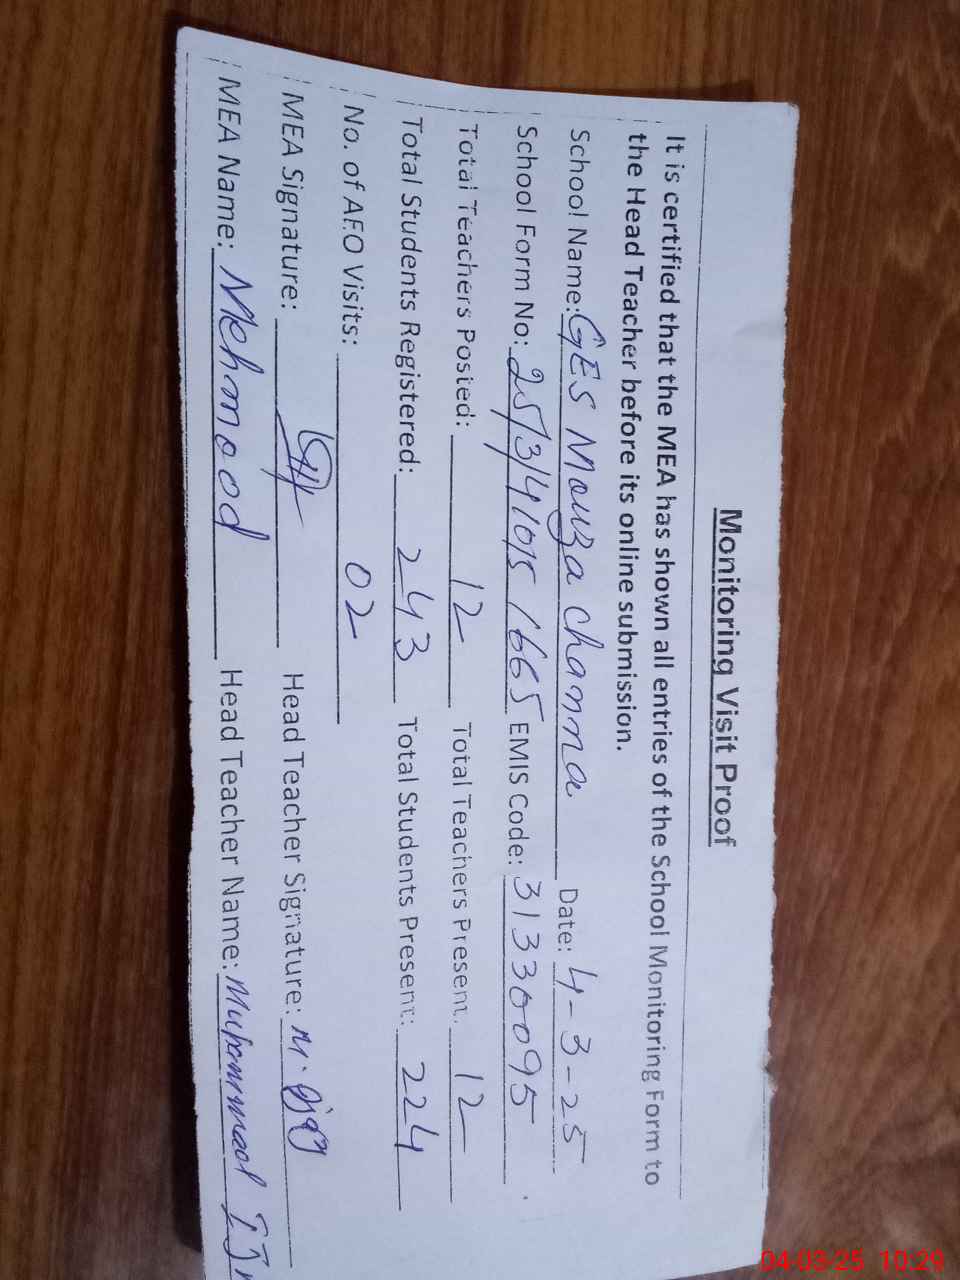 Monitoring Visit Proof
It is certified that the MEA has shown all entries of the School Monitoring Form to
the Head Teacher before its online submission.
School Name: GES Mouza channa Date: 4-3-25
School Form No: 25/3/41015/1665 EMIS Code: 31330095
Total Teachers Posted: 12 Total Teachers Present: 12
Total Students Registered: 243 Total Students Present: 224
No. of AEO Visits: 02
MEA Signature: Head Teacher Signature:
MEA Name: Mehmood Head Teacher Name: Muhammad
04-03-25 10:29